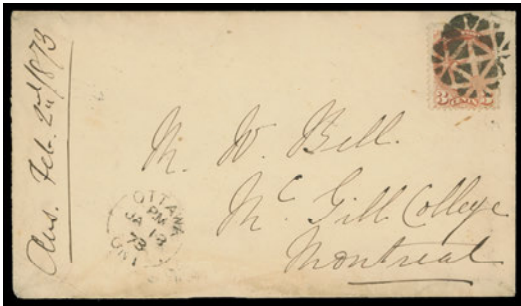 Ans. Feb. 2nd/1873
M. W. Bell.
Mc Gill College
Montreal
OTTAWA
PM
JA 13
73
ONT
3 3